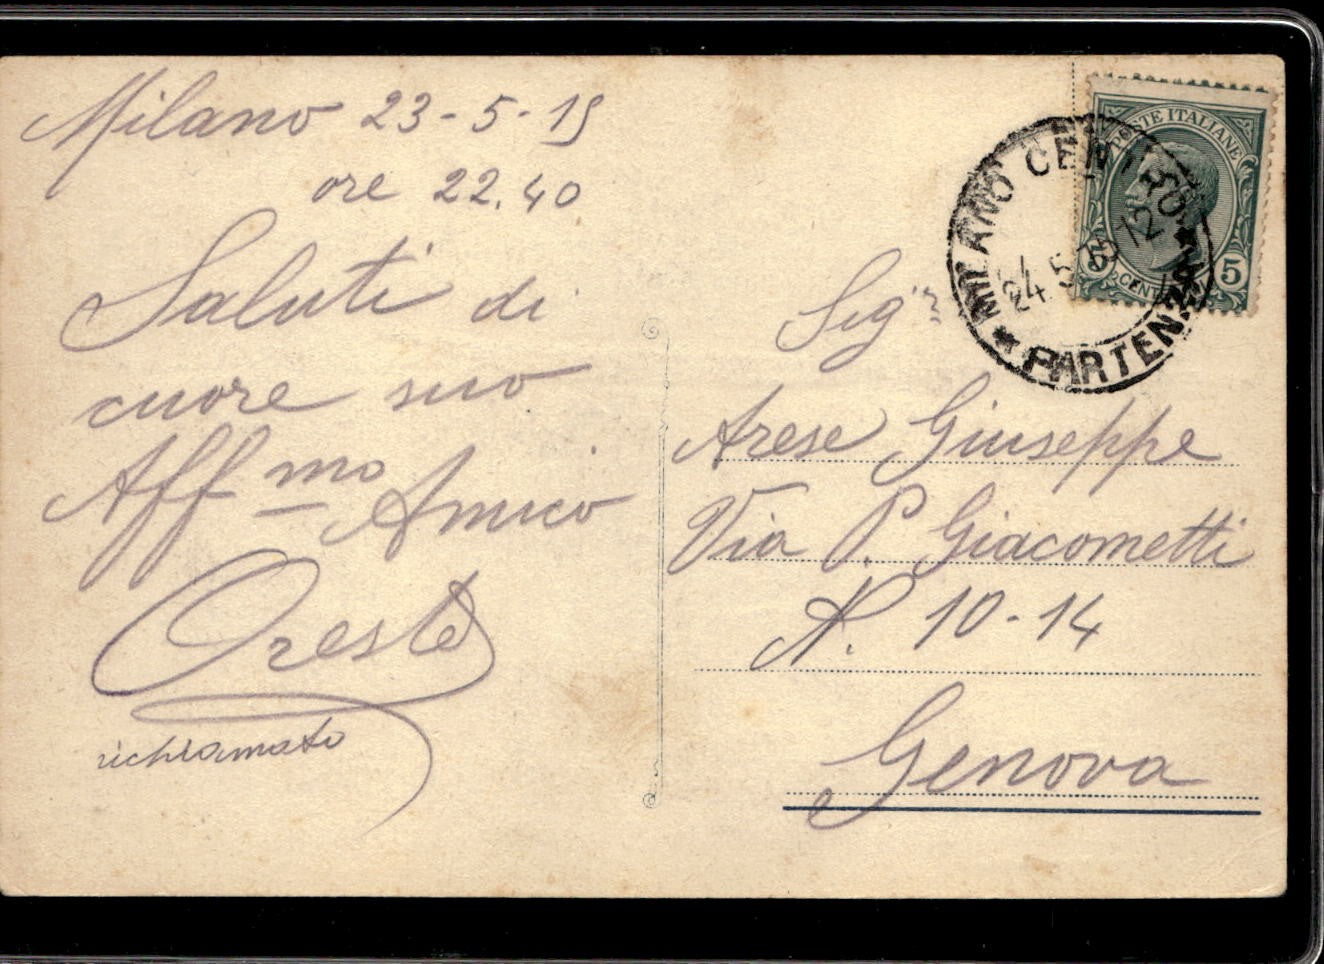 Milano 23-5-15
ore 22.40
Saluti di
cuore suo
Aff.mo Amico
Oreste
richiamato
POSTE ITALIANE
5 CENT. 5
MILANO CENTRO
24.5 15 12
* PARTENZA *
Sigr
Arese Giuseppe
Via P. Giacometti
N. 10-14
Genova